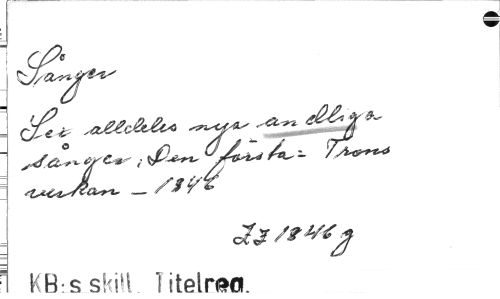 Sånger
Sex alldeles nya andliga
sånger; Den första: Trons
verkan – 1846
ZZ 1846 g
KB:s skill. Titelreg.